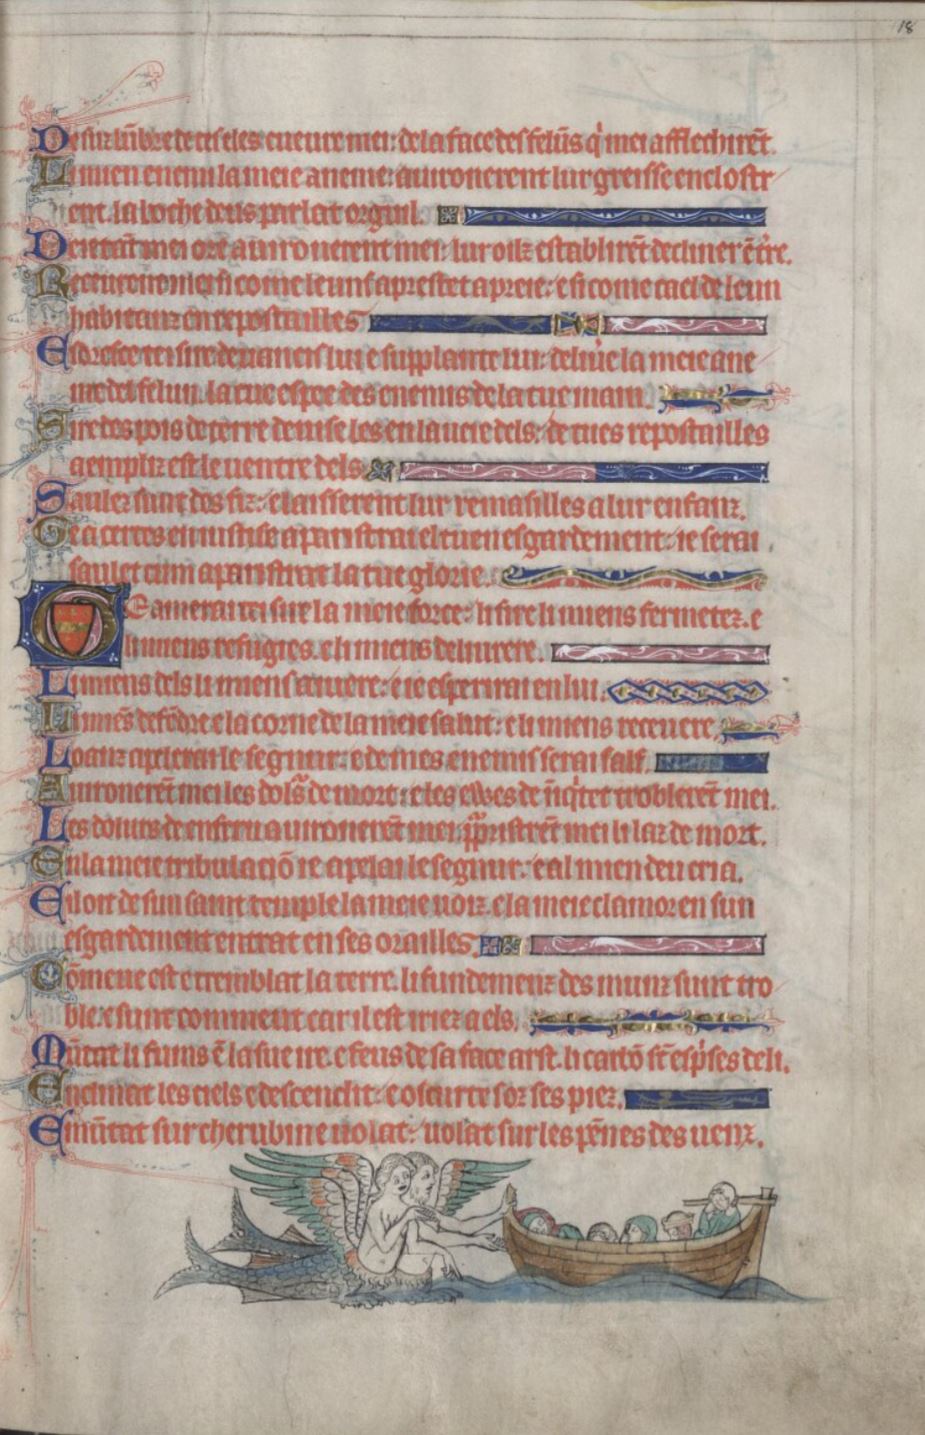 18
De suz lūbre de tes eles cueure mei: de la face des feluns q̇ mei afflechirēt.
Li mien enemi la meie aneme auironerent lur greisse enclostr
ent. la boche deus parlat orguil.
De ietāt mei ore auironerent mei: lur oilz establirēt decliner ē t're.
Receurent mei si come leuns aprestet a preie: e si come cael de leun
habitanz en repostailles
Esdresce tei sire deuancis lui e supplante lui: deliure la meie ane
me del felun. la tue espee des enemis de la tue main.
Sire des pois de terre deuise les en la uie dels: de tues repostailles
aempliz est le uentre dels
Saulez sunt des fiz: e laisserent lur remasilles a lur enfanz.
Ge acertes en iustise aparistrai el tuen esgardement: ie serai
saulet cum aparistrat la tue glorie.
Ge amerai tei sire la meie force: li sire li miens fermetez. e
li miens refugies. e li miens deliurere.
Li miens dels li miens aiuere: e ie espeirai en lui.
Li miēs defēdre e la corne de la meie salut: e li miens receuere.
Loanz apelerai le segnur: e de mes enemis serai salf.
Auironerēt mei les dols de mort: e les ewes de iniq̇tet troblerēt mei.
Les doluis de enfern auironerēt mei: ppristrēt mei li laz de mort.
En la meie tribulaciō ie apelai le segnur: e a l mien deu cria.
E il oit de sun saint temple la meie uoiz. e la meie clamor en sun
esgardement entrat en ses orailles.
Cōmeue est e tremblat la terre. li fundemenz des munz sunt tro
ble. e sunt commeut car il est iriez a els.
Mūtat li fums ē la sue ire. e feus de sa face arst. li carbō sūt esp̄ses de li.
Enclinat les ciels e descendit: e oscurte soz ses piez.
E mūtat sur cherubin e uolat: uolat sur les pēnes des uenz.